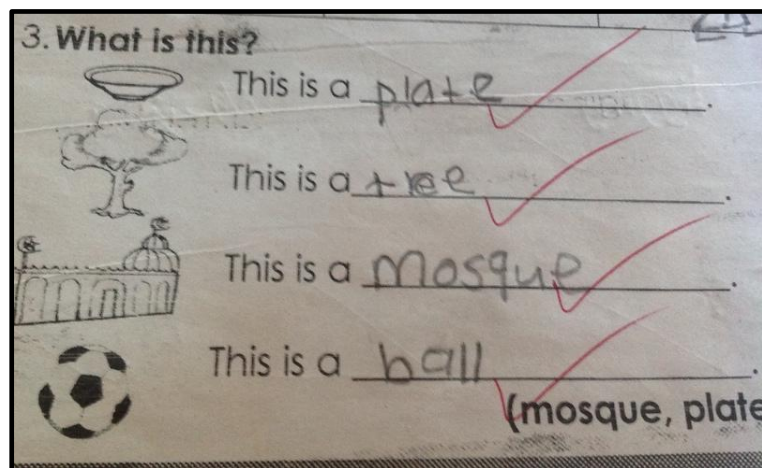 3. What is this?
This is a plate.
This is a tree.
This is a Mosque.
This is a ball.
(mosque, plate